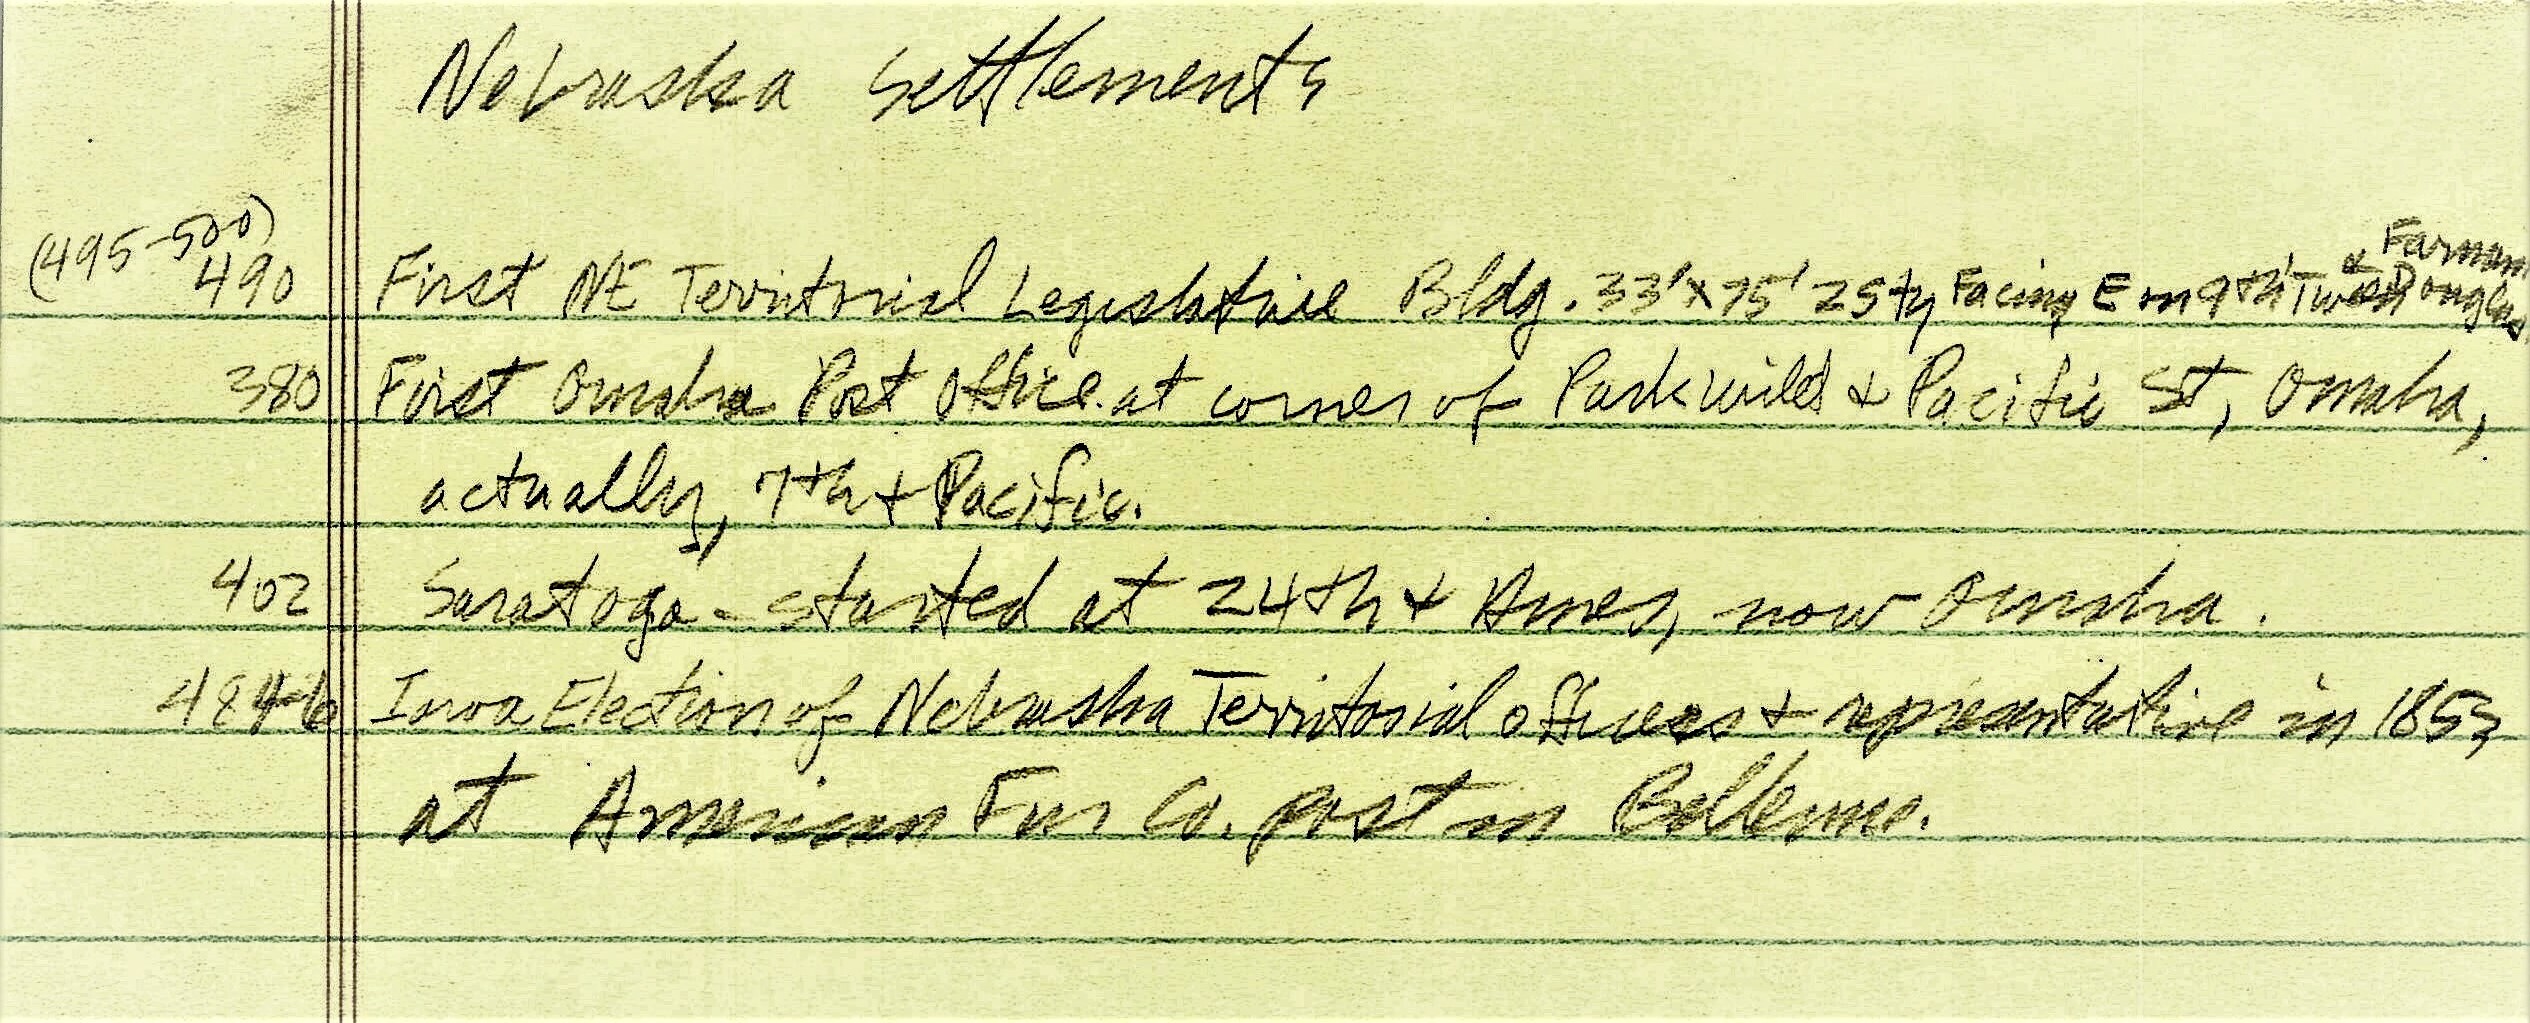 Nebraska Settlements
(495-500)
490 First NE Territorial Legislative Bldg. 33'x75' 2sty Facing E on 9th Tween Douglas & Farnam
380 First Omaha Post Office at corner of Parkwild & Pacific St, Omaha,
actually, 7th & Pacific.
402 Saratoga - started at 24th & Ames, now Omaha.
484-6 Iowa Election of Nebraska Territorial offices & representative in 1853
at American Fur Co. post in Bellevue.